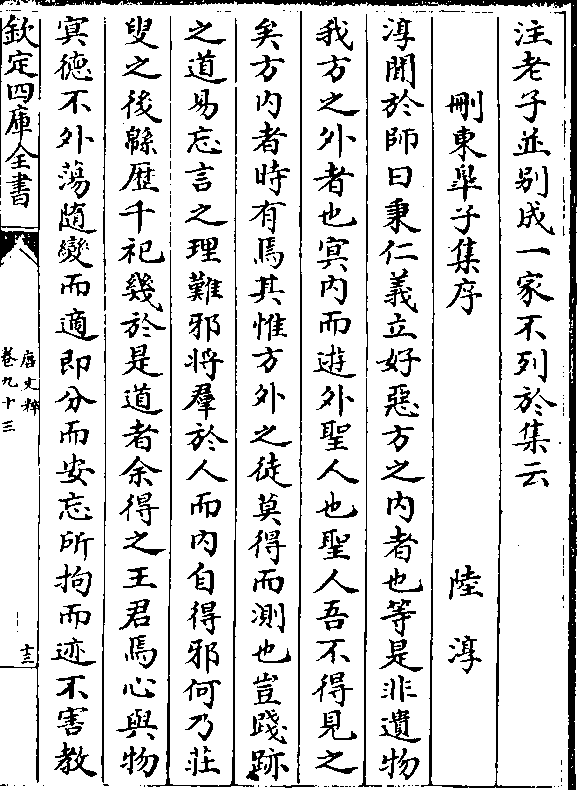 注老子並别成一家不列於集云
刪東臯子集序　陸淳
淳聞於師曰秉仁義立好惡方之内者也等是非遺物
我方之外者也㝠内而遊外聖人也聖人吾不得見之
矣方内者時有焉其惟方外之徒莫得而測也豈踐跡
之道易忘言之理難邪将羣於人而内自得邪何乃莊
叟之後緜歴千祀幾於是道者余得之王君焉心與物
㝠德不外蕩随變而適即分而安忘所拘而迹不害教
欽定四庫全書
唐文粹
卷九十三
十三